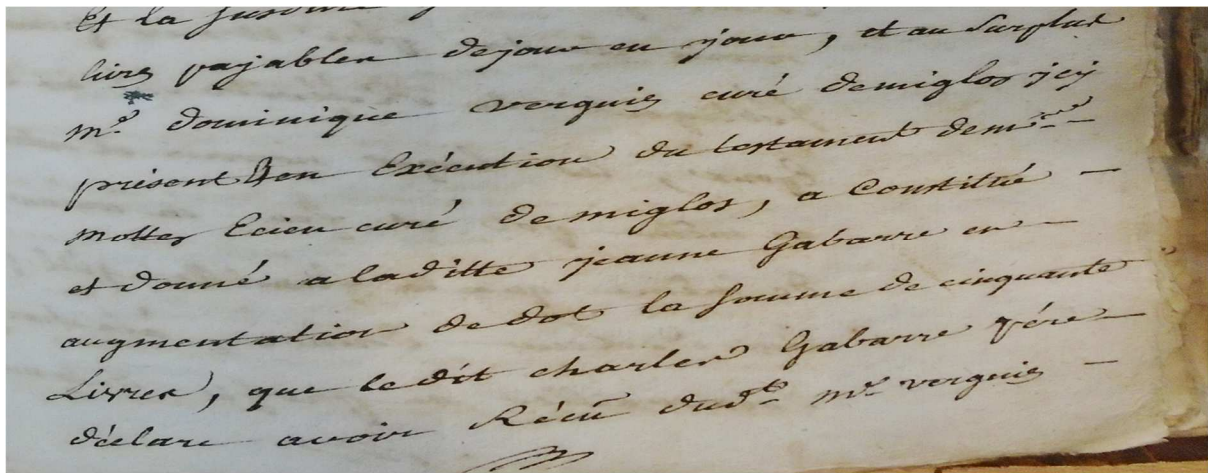 Et la
livres payables dejour en jour, et au Surplus
m.e dominique verguies curé demiglos jcy
présent & en Exécution du testament dem.re —
mottes Ecien curé de miglos, a Constitué —
et donné a laditte jeanne Gabarre en —
augmentation de dot la somme de cinquante
Livres, que ledit charles Gabarre pére —
déclare avoir Récû dud.t m.e verguies —